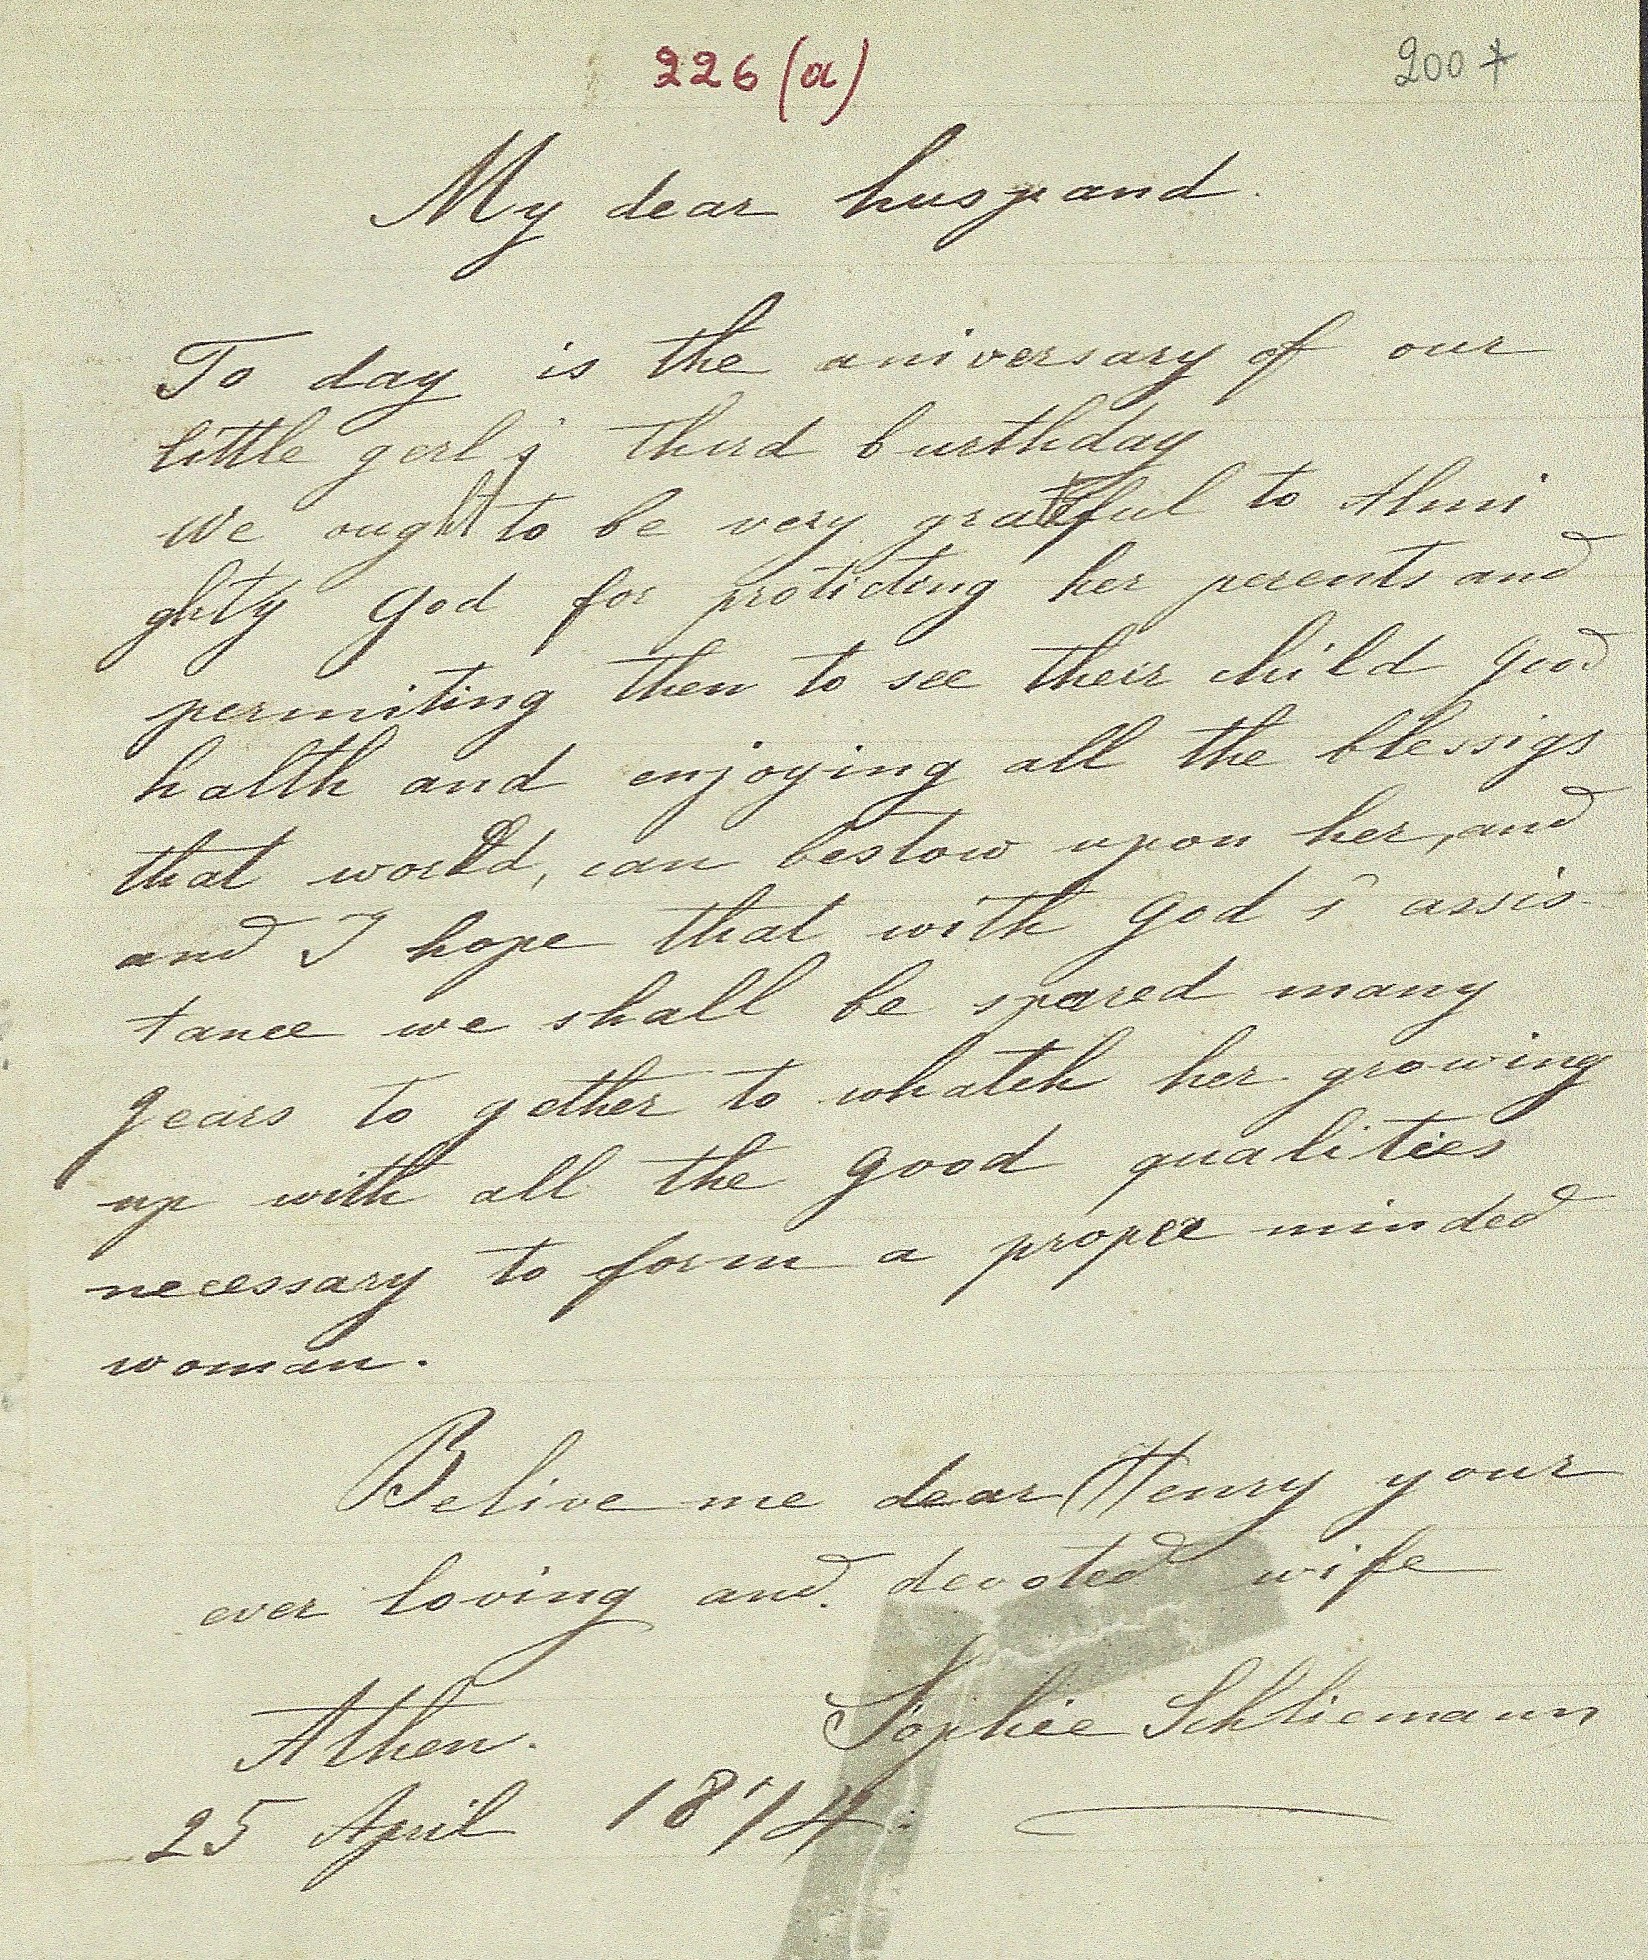 226 (a)
200 7
My dear huspand.
To day is the aniversary of our
little gerl's third burthday
We ought to be very grateful to Almi
ghty God for proticting her perents and
permiting then to see their child good
halth and enjoying all the blessigs
that world, can bestow upon her, and
and I hope that with God's assis-
tance we shall be speared many
years to gether to whatch her growing
up with all the good qualities
necessary to form a proper minded
woman.
Belive me dear Henry your
ever loving and devoted wife
Sophie Schliemann
Athen.
25 April 1874.